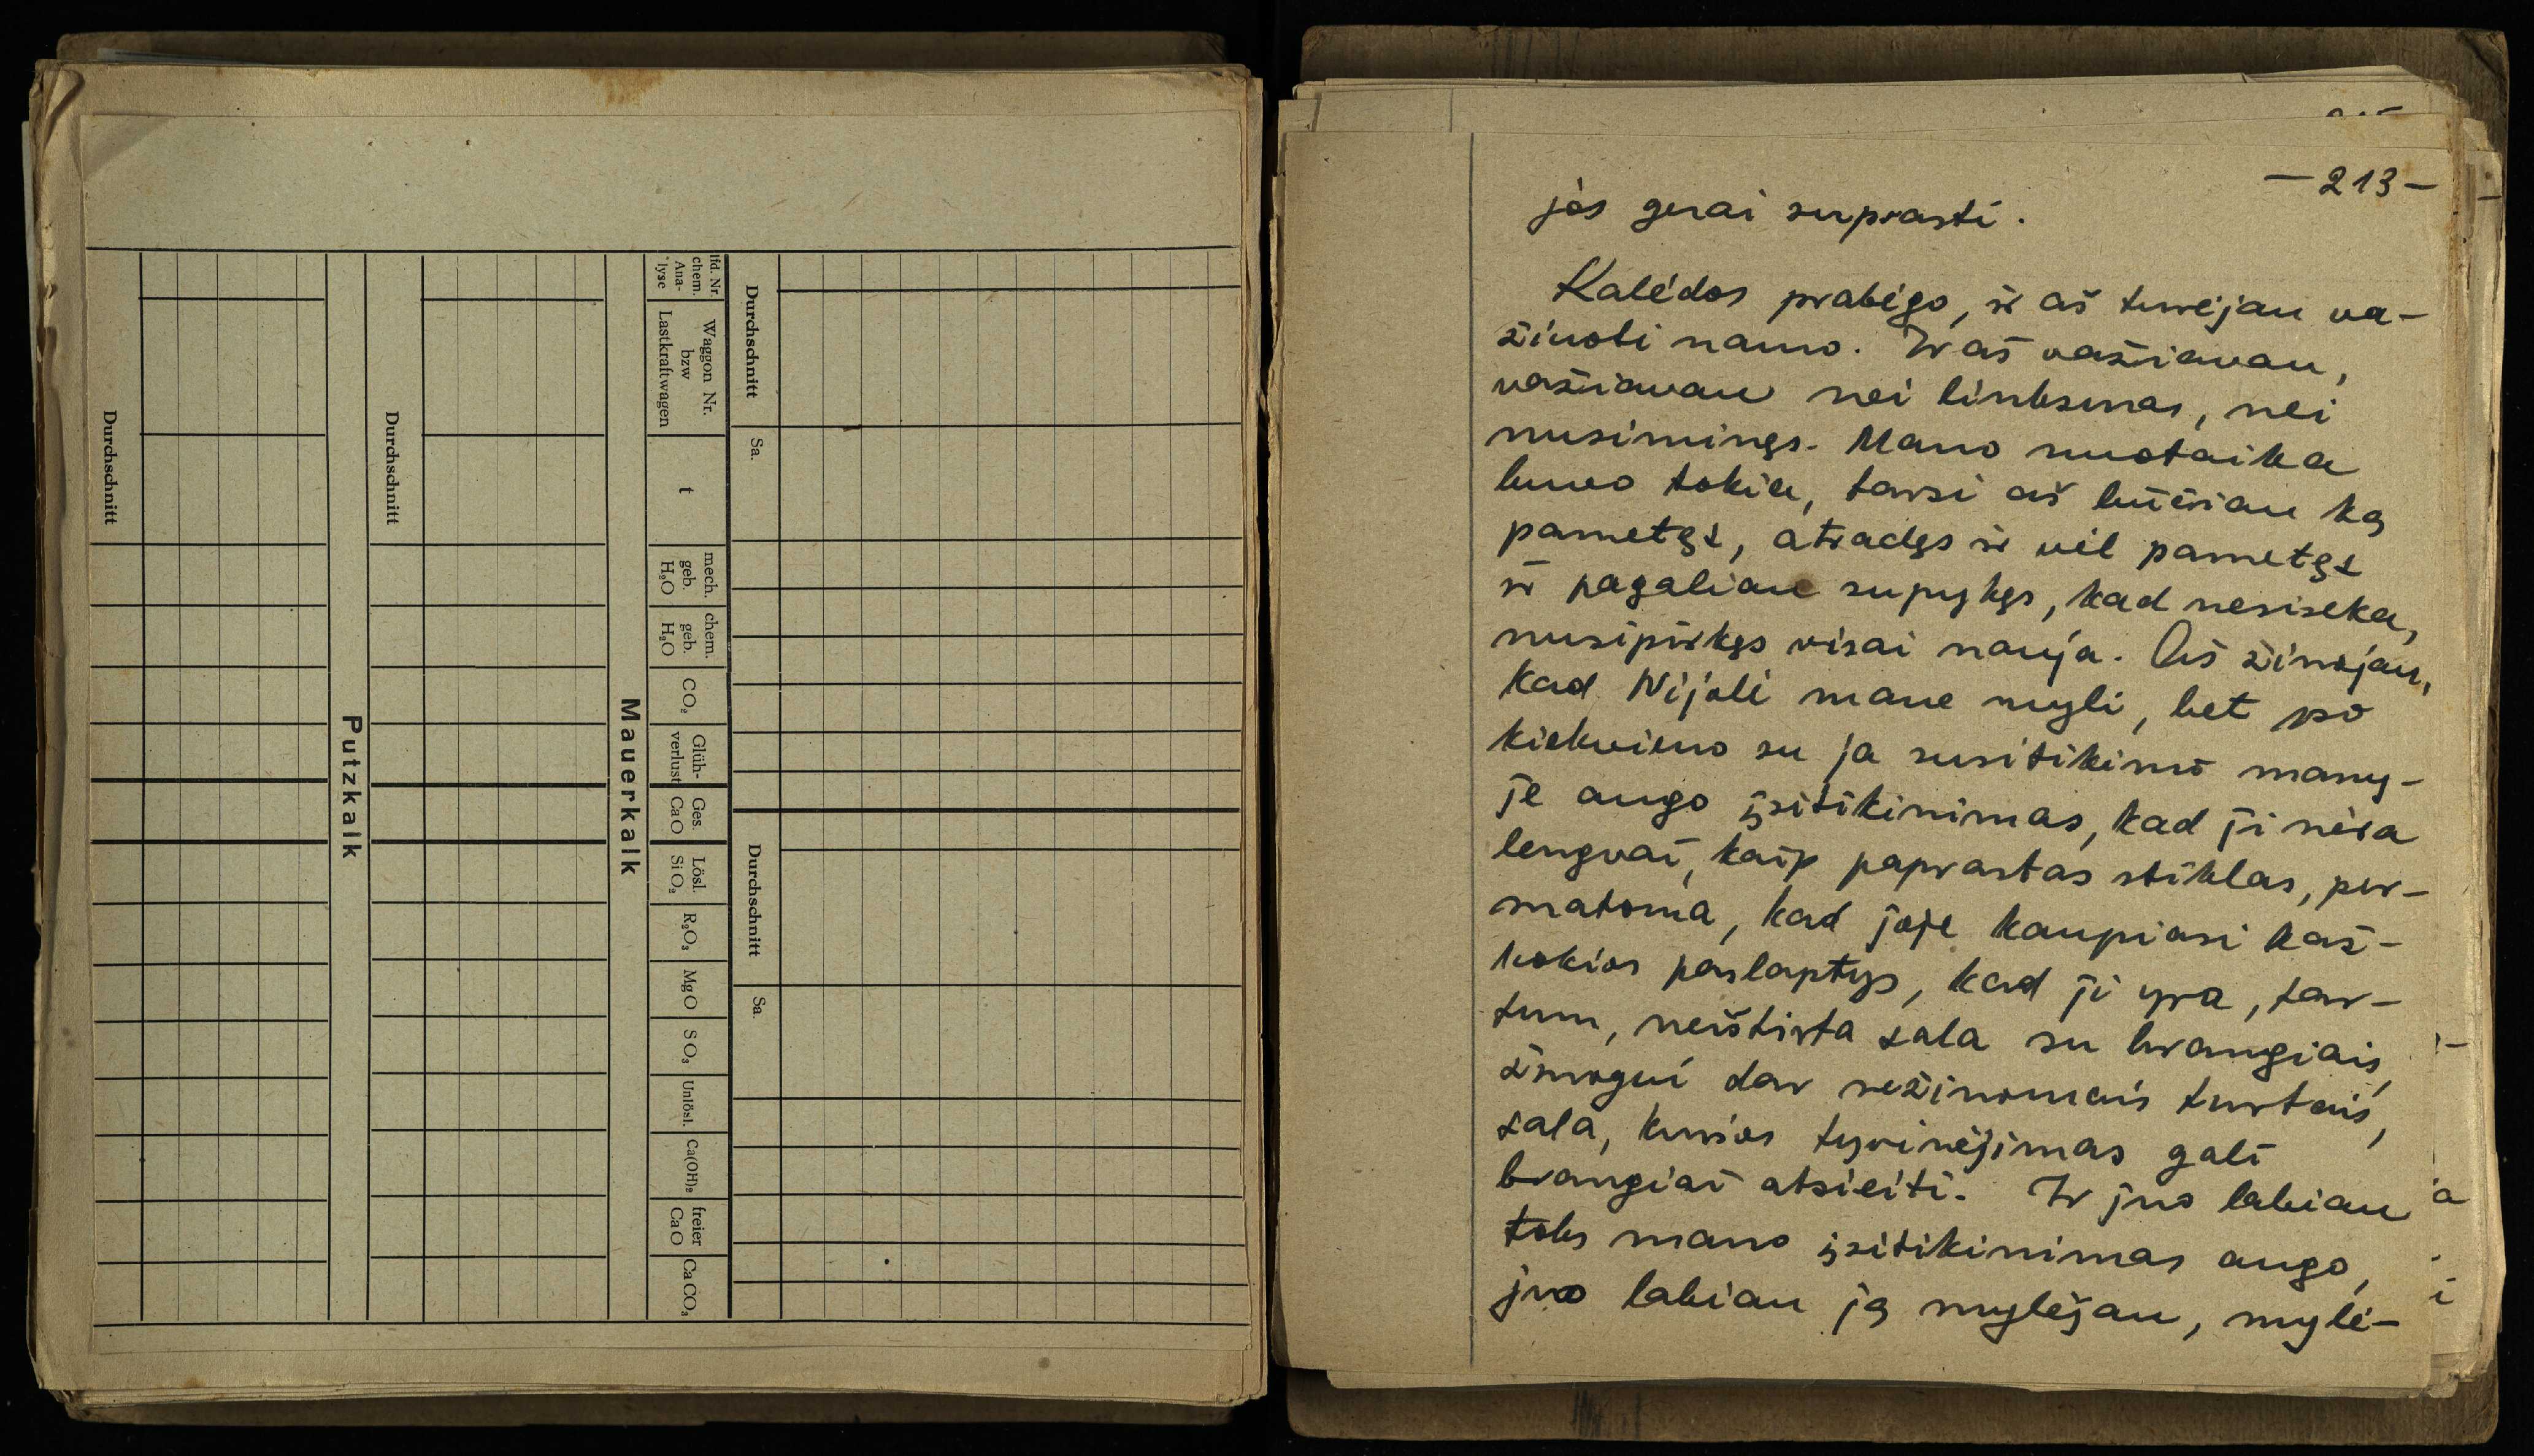 Durchschnitt
Putzkalk
Durchschnitt
Mauerkalk
lfd. Nr.
chem.
Ana-
lyse
Waggon Nr.
bzw
Lastkraftwagen
t
mech.
geb.
H₂O
chem.
geb.
H₂O
CO₂
Glüh-
verlust
Ges.
CaO
Lösl.
SiO₂
R₂O₃
MgO
SO₃
Unlösl.
Ca(OH)₂
freier
CaO
CaCO₃
Durchschnitt
Sa.
Durchschnitt
Sa.
—213—
jos gerai suprasti.
Kalėdos prabėgo, ir aš turėjau va-
žiuoti namo. Ir aš važiavau,
važiavau nei linksmas, nei
nusiminęs. Mano nuotaika
buvo tokia, tarsi aš bučiau ką
pametęs, atradęs ir vėl pametęs
ir pagaliau supykęs, kad nesiseka,
nusipirkęs visai nauja. Aš žinojau,
kad Nijolė mane myli, bet po
kiekvieno su ja susitikimo many-
je augo įsitikinimas, kad ji nėra
lengvai, kaip paprastas stiklas, per-
matoma, kad joje kaupiasi kaž-
kokios paslaptys, kad ji yra, tar-
tum, neištirta sala su brangiais,
žmogui dar nežinomais turtais,
sala, kurios tyrinėjimas gali
brangiai atsieiti. Ir juo labiau
toks mano įsitikinimas augo,
juo labiau ją mylėjau, mylė-